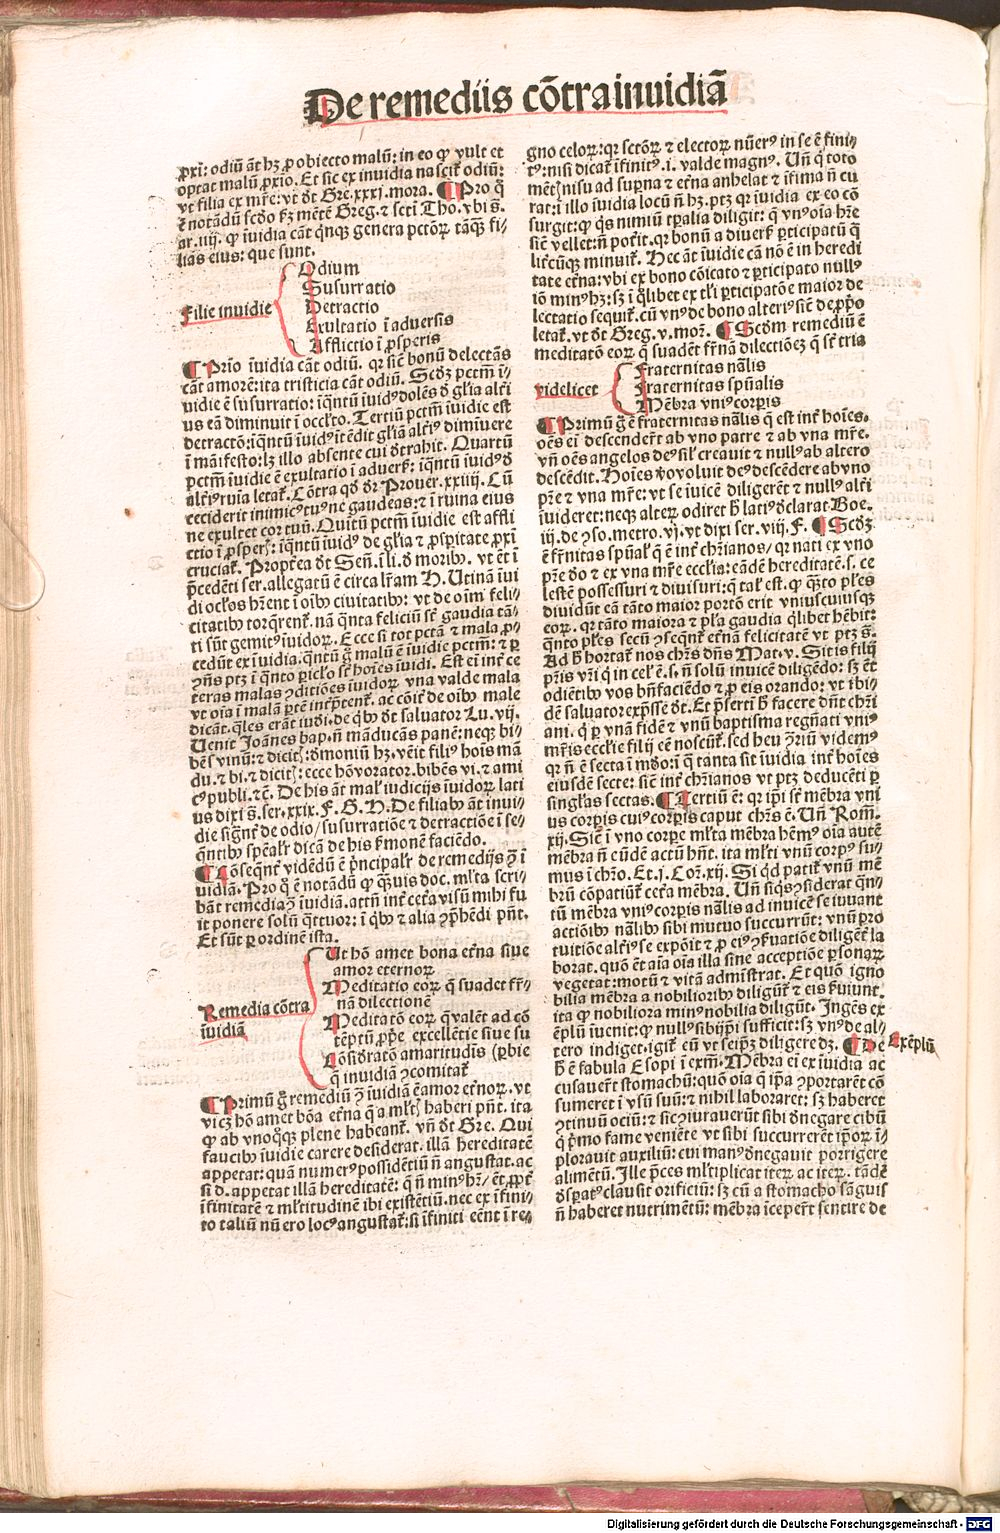 De remediis cõtra inuidiã
ꝓxi: odiũ ãt hꝫ ꝓ obiecto malũ: in eo ꝙ vult et
optat malũ ꝓxio. Et sic ex inuidia nascit̃ odiũ:
vt filia ex mr̃e: vt dt Gre. xxxj. mora. ¶ Pro q̃
ẽ notãdũ scdo fꝫ mẽtẽ Greg. ⁊ scti Tho. vbi s̃.
ar. iiij. ꝙ ĩuidia cãt qnꝗꝫ genera pctõꝝ tãꝗ̃ fi/
lias eius: que sunt.
Filie inuidie
Odium
Susurratio
Detractio
Exultatio ĩ aduersis
Afflictio ĩ ꝓsperis
¶ Prio ĩuidia cãt odiũ. qꝛ sic̃ bonũ delectãs
cãt amorẽ: ita tristicia cãt odiũ. Scdꝫ pctm̃ ĩ/
uidie ẽ susurratio: iqntũ ĩuidꝰ dolẽs d̃ gl̃ia alt̃i
us eã diminuit ĩ occl̃to. Tertiũ pctm̃ ĩuidie est
detractõ: iqntũ ĩuidꝰ itẽdit gl̃iã alt̃iꝰ dimiuere
ĩ mãifesto: lꝫ illo absente cui dtrahit. Quartũ
pctm̃ ĩuidie ẽ exultatio ĩ aduers̃: iqntũ ĩuidꝰ d̃
alt̃iꝰ ruĩa letat̃. Cõtra qd dr̃ Prouer. xxiiij. Cũ
ceciderit inimicꝰ tuꝰ ne gaudeas: ⁊ ĩ ruina eius
ne exultet cor tuũ. Quĩtũ pctm̃ ĩuidie est affli
ctio ĩ ꝓsperꝭ: iqntũ ĩuidꝰ de gl̃ia ⁊ ꝓspitate ꝓxi
cruciat̃. Propt̃ea dt Señ. ĩ li. d̃ moribꝰ. vt ẽt ĩ
p̃cedẽti ser. allegatũ ẽ circa lr̃am H. Utinã ĩui
di ocl̃os hr̃ent ĩ oĩbꝰ ciuitatibꝰ: vt de oĩm feli/
citatibꝰ torqrent̃. nã qnta feliciũ st̃ gaudia tã/
ti sũt gemitꝰ ĩuidoꝝ. Ecce si tot pctã ⁊ mala ꝓ/
cedũt ex ĩuidia. qntũ g̃ malũ ẽ ĩuidie pctm̃: ⁊ ꝑ
ꝯñs ptꝫ ĩ qnto picl̃o st̃ hoĩes ĩuidi. Est eĩ int̃ ce
teras malas ꝯditões ĩuidoꝝ vna valde mala
vt oĩa ĩ malã ptẽ int̃ptent̃. ac cõit̃ de oĩbꝰ male
dicãt. q̃les erãt iud̃i. de qbꝰ dt saluator Lu. vij.
Uenit Joãnes bap. ñ mãducãs panẽ: neqꝫ bi/
bẽs vinũ: ⁊ dicitꝭ: dmoniũ hꝫ. vẽit filiꝰ hois mã
du. ⁊ bi. ⁊ dicitꝭ: ecce hõ vorator. bibẽs vi. ⁊ ami
cꝰ publi. ⁊ c̃. De his ãt mal̃ iudicijs ĩuidoꝝ lati
us dixi s̃. ser. xxix. F. G. H. De filiabꝰ ãt inui/
die signt̃ de odio/ susurratiõe ⁊ detractiõe ĩ se/
q̃ntibꝰ spẽalr̃ dicã de his s̃monẽ faciẽdo.
¶ Cõseqnt̃ vidẽdũ ẽ pncipalr̃ de remedijs ꝯ ĩ
uidiã. Pro q̃ ẽ notãdũ ꝙ q̃ꝫuis doc. ml̃ta scri/
bãt remedia ꝯ ĩuidiã. attñ int̃ cet̃a visũ mihi fu
it ponere solũ q̃ttuor: ĩ qbꝰ ⁊ alia ꝯp̃hẽdi pñt.
Et sũt ꝑ ordinẽ ista.
Remedia cõtra
ĩuidiã
Ut hõ amet bona et̃na siue
amor eternoꝝ
Meditatio eoꝝ q̃ suadẽt fr̃/
nã dilectionẽ
Meditatõ eoꝝ q̃ valẽt ad cõ
tẽptũ ꝓpe excellẽtie siue su
Cõsid̃rato amaritudis (ꝑbie
q̃ inuidiã ꝯcomitat̃
¶ Primũ g̃ remediũ ꝯ ĩuidiã ẽ amor et̃noꝝ. vt
vicꝫ hõ amet bõa et̃na q̃ a ml̃tꝭ haberi pñt. ita
ꝙ ab vnoqꝗꝫ plene habeant̃. vñ dt Gre. Qui
faucibꝰ ĩuidie carere desiderat. illã hereditatẽ
appetat: quã numerꝰ possidẽtiũ ñ angustat. ac
si d. appetat illã hereditatẽ: q̃ ñ minꝰ hr̃/ ẽt ꝓpt̃
ĩfinitatẽ ⁊ ml̃titudinẽ ibi existẽtiũ. nec ex ĩfini/
to taliũ nũero locꝰ angustat̃: si ĩfiniti eẽnt ĩ re/
gno celoꝝ: qꝛ sctõꝝ ⁊ electoꝝ nũerꝰ in se ẽ fini/
tꝰ: nisi dicat̃ ĩfinitꝰ .i. valde magnꝰ. Uñ q̃ toto
mẽtꝭ nisu ad suꝑna ⁊ et̃na anhelat ⁊ ĩfima ñ cu
rat: ĩ illo ĩuidia locũ ñ hꝫ. ptꝫ qꝛ ĩuidia ex eo cõ
surgit: ꝙ qs nimiũ tꝑalia diligit: q̃ vnꝰ oĩa hr̃e
sic̃ vellet: ñ pot̃it. qꝛ bonũ a diuers̃ ꝑticipatũ q̃
lit̃cũqꝫ minuit̃. Hec ãt ĩuidie cã nõ ẽ in heredi
tate et̃na: vbi ex bono cõicato ⁊ ꝑticipato nullꝰ
iõ minꝰ hꝫ: sꝫ ĩ qlibet ex tl̃i ꝑticipatõe maior de
lectatio sequit̃. cũ vnꝰ de bono alteriꝰ sic̃ de ꝓpo
letat̃. vt dt Greg. v. mor̃. ¶ Scdm remediũ ẽ
meditatõ eoꝝ q̃ suadẽt fr̃nã dilectionẽ. q̃ st̃ tria
videlicet
Fraternitas nãlis
Fraternitas spũalis
Mẽbra vniꝰ corpis
¶ Primũ g̃ ẽ fraternitas nãlis q̃ est int̃ hoĩes.
oẽs eĩ descendert̃ ab vno patre ⁊ ab vna mr̃e.
vñ oẽs angelos deꝰ sil̃ creauit ⁊ nullꝰ ab altero
descẽdit. Hoĩes v̆o voluit deꝰ descẽdere ab vno
pr̃e ⁊ vna mr̃e: vt se iuicẽ diligerẽt ⁊ nullꝰ alt̃i
ĩuideret: neqꝫ alteꝝ odiret b̃ latiꝰ d̃clarat Boe.
iij. de ꝯso. metro. vj. vt dixi ser. viij. F. ¶ Scdꝫ
ẽ fr̃nitas spũal̃ q̃ ẽ int̃ chr̃ianos/ qꝛ nati ex vno
pr̃e do ⁊ ex vna mr̃e eccl̃ia: eãdẽ hereditatẽ. s. ce
lestẽ possessuri ⁊ diuisuri: q̃ tal̃ est. ꝙ q̃ꝫto pl̃es
diuidũt eã tãto maior portõ erit vniuscuiusqꝫ
eoꝝ. qꝛ tãto maiora ⁊ pl̃a gaudia qlibet hẽbit:
q̃nto pl̃es secũ ꝯseqnt̃ et̃nã felicitatẽ vt ptꝫ s̃.
Ad b̃ hortat̃ nos chr̃s dñs Mat. v. Sitis filij
pr̃is vr̃i q̃ in cel̃ ẽ. s. ñ solũ inuicẽ diligẽdo: sꝫ ẽt
odiẽtibꝰ vos bñfaciẽdo ⁊ ꝓ eis orando: vt ibi/
dẽ saluator exp̃sse dt. Et p̃serti b̃ facere dñt chr̃i
ani. q̃ ꝑ vnã fidẽ ⁊ vnũ baptisma regñati vniꝰ
mr̃is eccl̃ie filij eẽ noscũt̃. sed heu ꝯriũ videmꝰ
qꝛ ñ ẽ secta ĩ mũdo: ĩ q̃ tanta sit ĩuidia int̃ hoĩes
eiusdẽ secte: sic̃ int̃ chr̃ianos vt ptꝫ deducẽti ꝑ
singl̃as sectas. ¶ Tertiũ ẽ: qꝛ ipi st̃ mẽbra vni
us corpis cuiꝰ corpis caput chr̃s ẽ. Uñ Rom̃.
xij. Sic̃ ĩ vno corpe ml̃ta mẽbra hẽmꝰ oĩa autẽ
mẽbra ñ eũdẽ actũ hñt. ita ml̃ti vnũ corpꝰ su/
mus ĩ chr̃o. Et .j. Cor̃. xij. Si qd patit̃ vnũ mẽ
brũ cõpatiũt̃ cet̃a mẽbra. Uñ siqs ꝯsiderat qn/
tũ mẽbra vniꝰ corpis nãlis ad inuicẽ se iuuant
actiõibꝰ nãlibꝰ sibi mutuo succurrũt: vnũ pro
tuitiõe alt̃iꝰ se expõit ⁊ ꝓ eiꝰ ꝯs̃uatiõe diligẽt̃ la
borat. quõ ẽt aĩa oĩa illa sine acceptiõe ꝑsonaꝝ
vegetat: motũ ⁊ vitã admistrat. Et quõ igno
bilia mẽbra a nobiliorĩbꝰ diligũt̃ ⁊ eis s̃uiunt.
ita q̃ nobiliora minꝰ nobilia diligũt. Ingẽs ex
ẽplũ iuenit: ꝙ nullꝰ sibijpi sufficit: sꝫ vnꝰ de al/
tero indiget. igit̃ eũ vt seipꝫ diligere dꝫ. ¶ De
Exẽplũ
b̃ ẽ fabula Esopi ĩ exm̃. Mẽbra eĩ ex ĩuidia ac
cusauert̃ stomachũ: quõ oĩa q̃ ipa ꝯportarẽt cõ
sumeret ĩ vsũ suũ: ⁊ nihil laboraret: sꝫ haberet
ꝯtinuũ ociũ: ⁊ sic ꝯiurauerũt sibi d̃negare cibũ
q̃ p̃mo fame veniẽte vt sibi succurrerẽt ipoꝝ ĩ/
plorauit auxiliũ: cui manꝰ d̃negauit porrigere
alimẽtũ. Ille p̃ces ml̃tiplicat iteꝝ ac iteꝝ. tãdẽ
d̃spatꝰ clausit orificiũ: sꝫ cũ a stomacho sãguis
ñ haberet nutrimẽtũ: mẽbra ĩcepert̃ sentire de
Digitalisierung gefördert durch die Deutsche Forschungsgemeinschaft - DFG